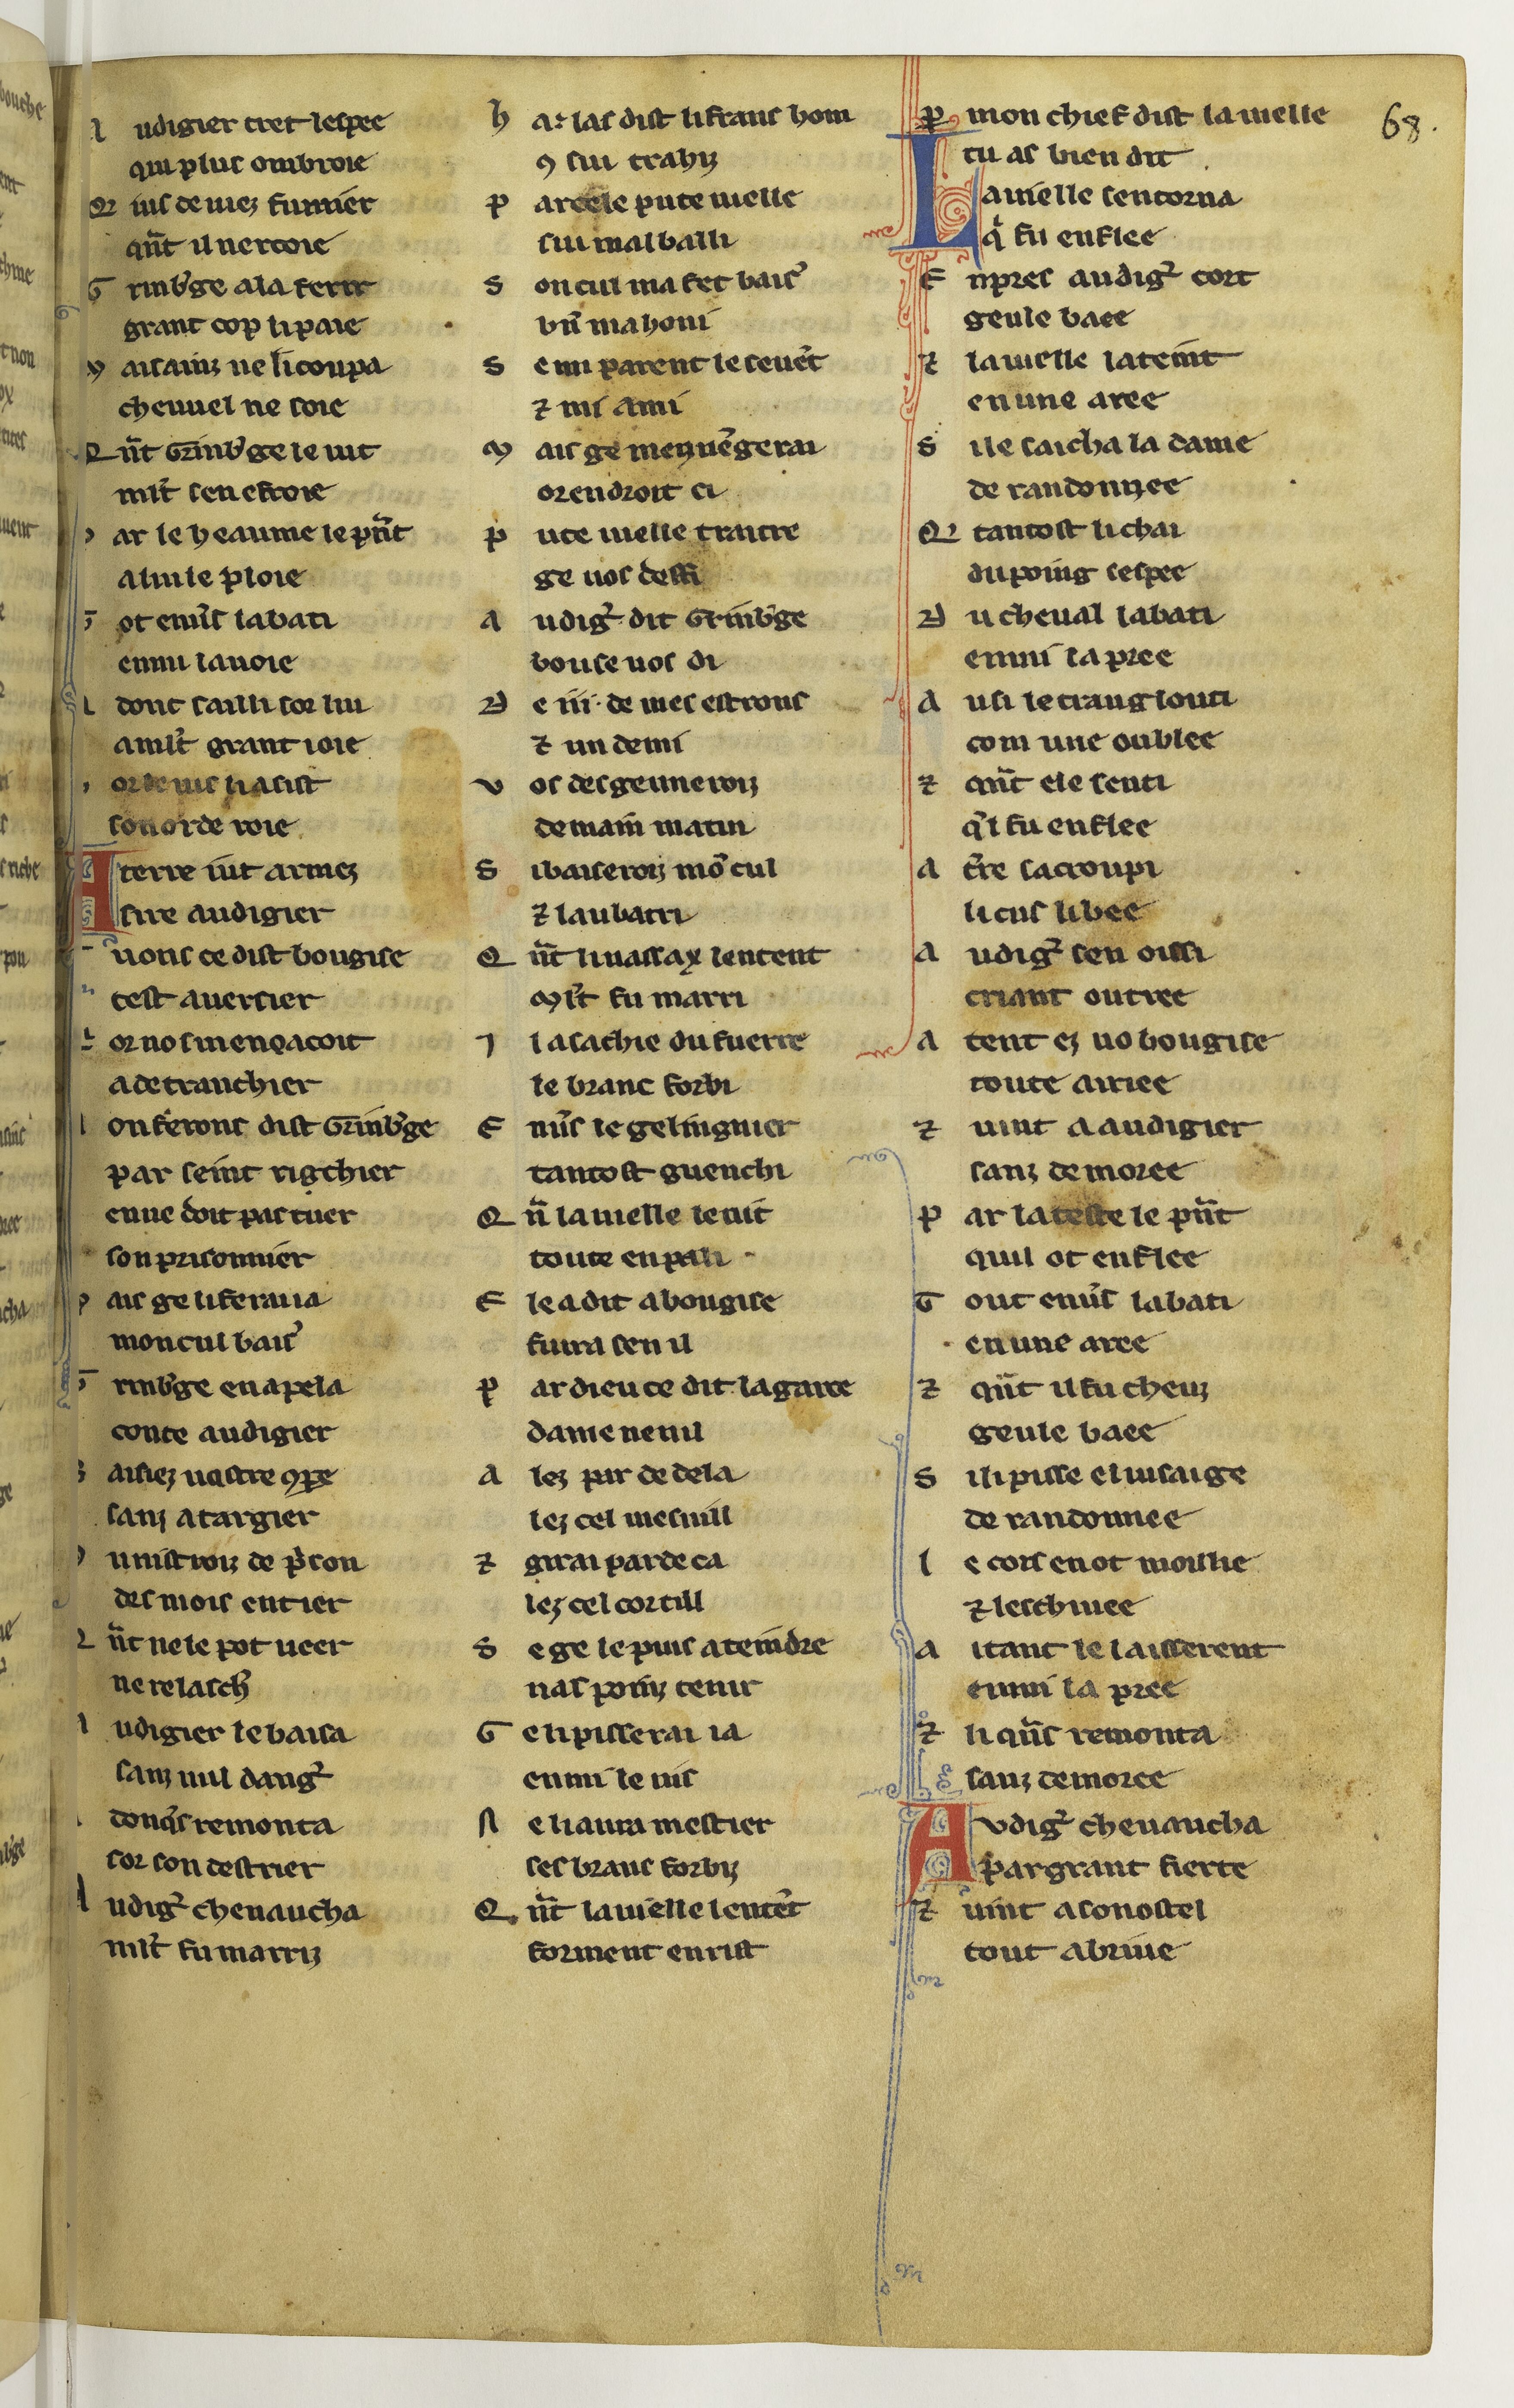 A udigier tret lespee
qui plus ombroie
Q uis de uiez fumier
qant il uertoie
G rinb'ge ala ferir
grant cop li paie
M ais ainz ne li coupa
cheuuel ne soie
Q ant Grinb'ge le uit
mlt sen effroie
P ar le heaume le pnt
a lui le ploie
G ot enuers labati
enmi la uoie
A donc sailli sor lui
a mlt grant ioie
sor le uis li asist
son orde roie
A terre iut armez
sire audigier
uons ce dist bougise
cest auersier
or nos menecoit
a detranchier
on ferons dist Grinb'ge
par seint rigchier
en ne doit pas tuer
son prisonnier
M ais ge li ferai ia
mon cul bais'
G rinb'ge en apela
conte audigier
B aisiez nostre 9pe
sanz atargier
u nistroiz de p'son
des mois entier
Q ant ne le pot ueer
ne relasch'
A udigier le baisa
sanz nul dang'
donqs remonta
sor son destrier
A udig' cheuaucha
mlt fu marriz
h a: las dist li frans hom
9 sui trahiz
P ar cele pute uielle
sui malbailli
S on cul ma fet bais'
bn ma honi
S e mi parent le seuent
⁊ mi ami
M ais ge men uengerai
orendroit ci
P ute uielle traitre
ge uos deffi
A udig' dit Grinb'ge
bouse uos di
D e iii. de mes estrons
⁊ un demi
V os desgeuneroiz
demain matin
S i baiseroiz mō cul
⁊ laubatri
Q nt li uassax lentent
Mlt fu marri
I l a sachie du fuerre
le branc forbi
E nuers le gelingnier
tantost guenchi
Q n la uielle le uit
toute en pali
E le a dit a bougise
fuira sen il
P ar dieu ce dit la garce
dame nenil
A lez par de dela
lez cel mesnill
⁊ girai par de ca
lez cel cortill
S e ge le puis ateindre
nas poinz tenir
G e li pisserai ia
enmi le uis
N e li aura mestier
ses brans forbiz
Q nt la uielle lentent
forment en rist
P mon chief dist la uielle
tu as bien dit
L a uielle sentorna
q' fu enflee
E npres audig' cort
geule baee
⁊ la uielle lateint
en une aree
S i le saicha la dame
de randonnee
Q tantost li chai
du poing sespee
D u cheual labati
enmi la pree
A usi le tranglouti
com une oublee
⁊ qnt ele senti
q'l fu enflee
A t're sacroupi
li cus li bee
A udig' sen oissi
criant outree
A tent ez uo bougise
toute airiee
⁊ uint a audigier
sanz demoree
P ar la teste le pnt
quil ot enflee
G out enuers labati
en une aree
⁊ qnt il fu cheuz
geule baee
S i li pisse el uisaige
de randonnee
l e cors en ot moillie
⁊ leschinee
A itant le laisserent
enmi la pree
⁊ li quens remonta
sanz demoree
A vdig' cheuaucha
par grant fierte
⁊ uint a son ostel
tout abriue
68.